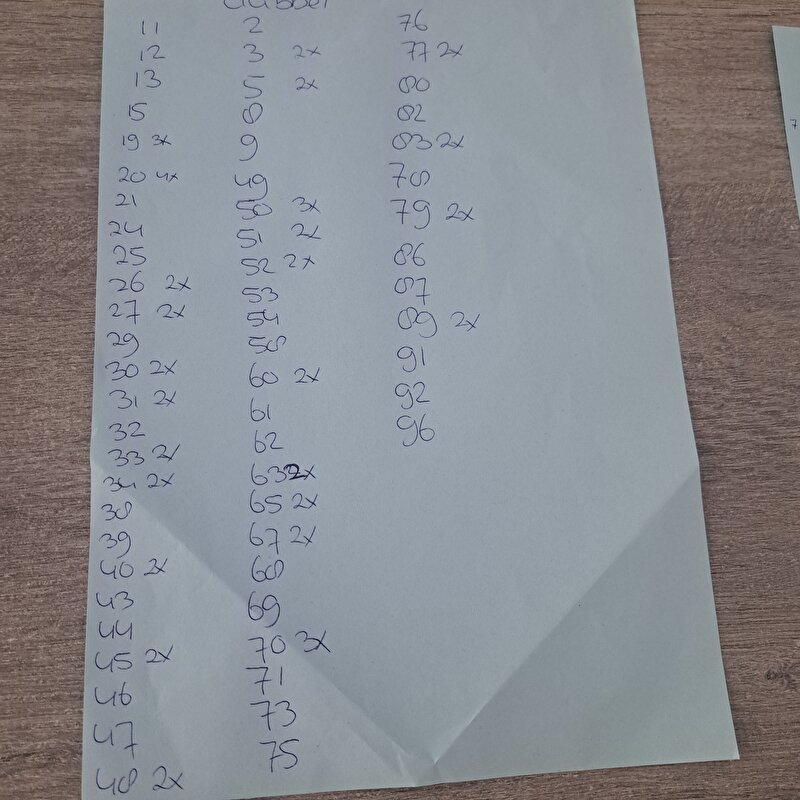 dubbel
11
12
13
15
19 3x
20 4x
21
24
25
26 2x
27 2x
29
30 2x
31 2x
32
33 2x
34 2x
38
39
40 2x
43
44
45 2x
46
47
48 2x
2
3 2x
5 2x
8
9
49
50 3x
51 2x
52 2x
53
54
58
60 2x
61
62
63 2x
65 2x
67 2x
68
69
70 3x
71
73
75
76
77 2x
80
82
83 2x
78
79 2x
86
87
89 2x
91
92
96
7